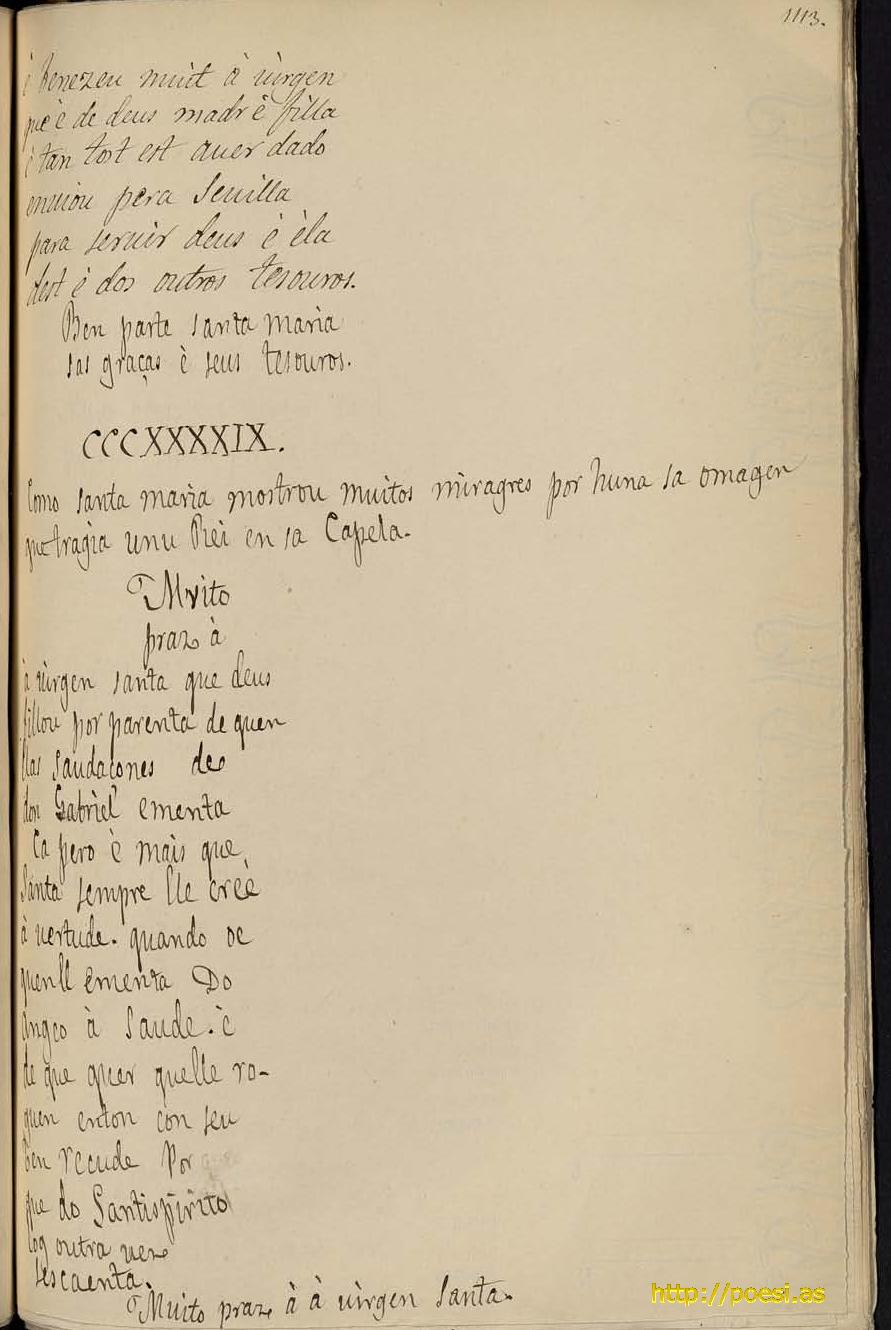 1113.
è benezeu muit à uirgen
que è de deus madr ê filla
è tan tost est auer dado
enuiou pera Seuilla
para seruir deus è èla
dest è dos outros tesouros.
Ben parte santa maria
sas graças è seus tesouros.
CCCXXXXIX.
Como santa maria mostrou muitos miragres por huna sa omagen
que tragia unu Rei en sa Capela.
Mvito
praz à
à uirgen santa que deus
fillou por parenta de quen
llas saudacones de
don Gabriel ementa
Ca pero è mais que
Santa sempre lle creê
à uertude. quando oe
quenll ementa Do
angeo à saude. è
de que quer quelle ro-
guen enton con seu
ben recude Por
que do Santispirito
log outra uez
sescaenta.
Muito praz à à uirgen Santa.
http://poesi.as